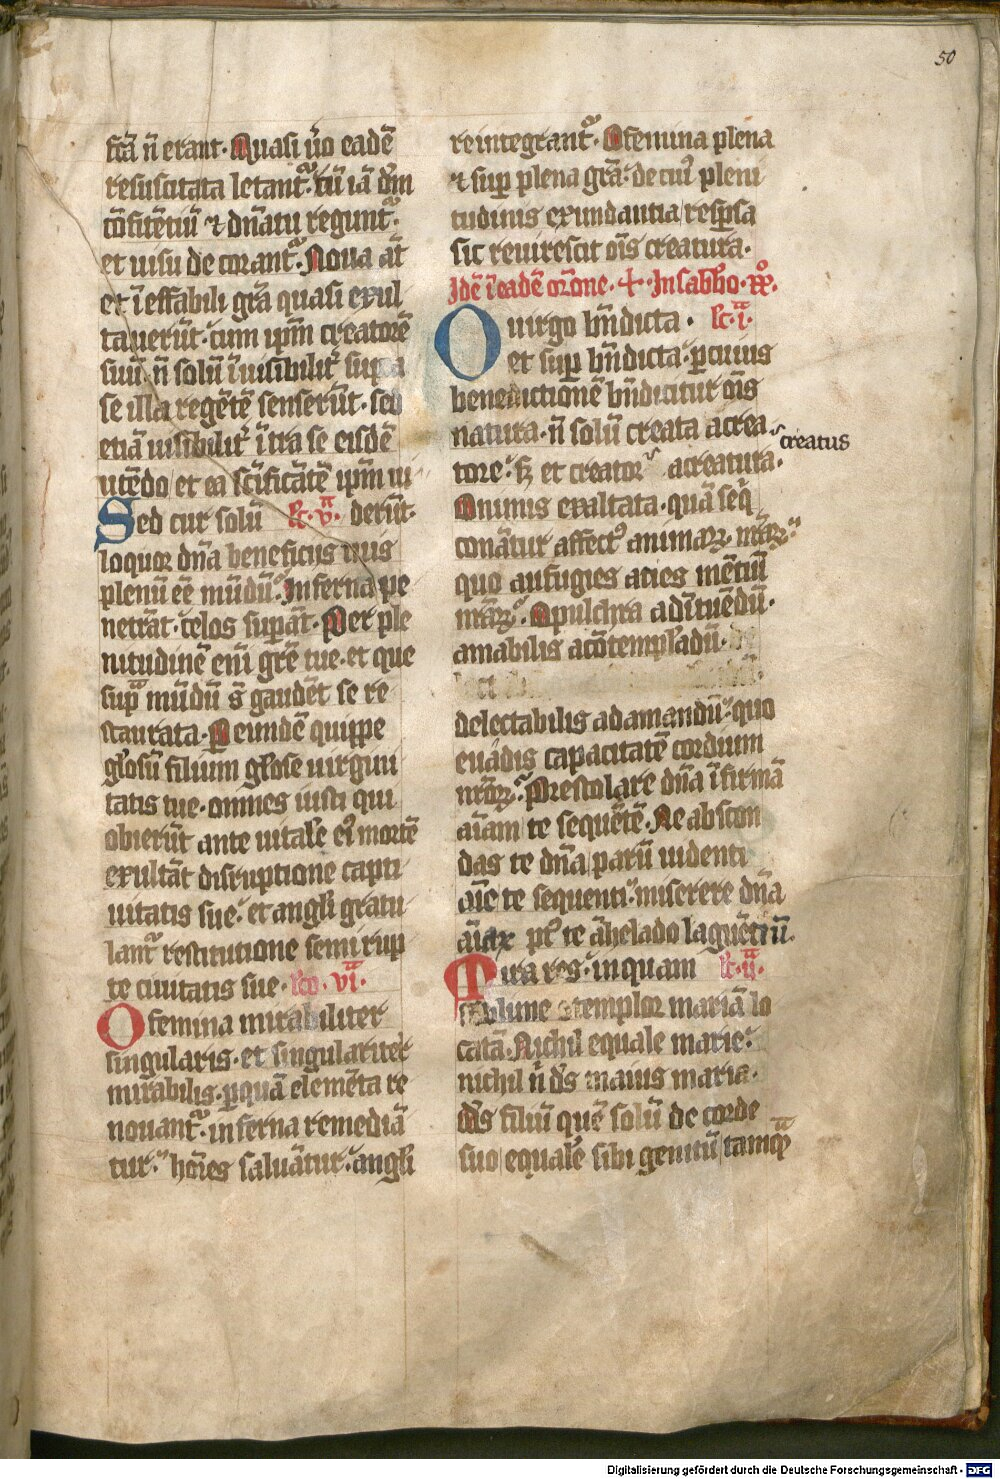 50
fc̄a n̄ erant. Quasi ūo eadē
resuscitata letant᷑. cū iā dn̄m
cōfitētiū ⁊ dn̄atu regunt᷑.
et uisu de corant᷑. Noua at̄
et ī effabili grā quasi exul
tauerūt. cum ip̄m creatorē
suū n̄ solū īuisibilit᷑ supra
se illa regētē senserūt. sed
etiā uisibilit᷑ ītra se eisdē
utēdo et ea sc̄ificātē ip̄m ui
Sed cur solū lc̄. v̄. derūt.
loquor dn̄a beneficijs tuis
plenū eē mūdū. Inferna pe
netrāt. celos supāt. Per ple
nitudinē eni grē tue. et que
sup̄ mūdū s̄ gaudēt se re
staurata. Per eundē quippe
glōsū filium glōse uirgini
tatis tue. omnes iusti qui
obierūt ante uitalē ei᷒ mortē
exultāt disruptione capti
uitatis sue. et angli gratu
lant᷑ restitutione semirup
te ciuitatis sue. lco. vī.
O femina mirabiliter
singularis. et singulariter
mirabilis. p quā elemēta re
nouant᷑. inferna remediā
tur. hōies saluātur. angli
reintegrant᷑. O femina plena
⁊ sup plena grā. de cui᷒ pleni
tudinis exundantia resp̄sa
sic reuirescit oīs creatura.
Idē ī eadē orōne. In sabb̄o.
O uirgo bn̄dicta. lc̄. ī.
et sup bn̄dicta. p cuius
benedictionē bn̄dicitur oīs
natura. n̄ solū creata a crea
creatus
tore. sꝫ et creator a creatura.
O nimis exaltata. quā seq̄
conātur affect᷒ anime mee
quo aufugies acies mētiū
nrāꝝ. O pulchra ad ītuēdū.
amabilis ad cōtemplādū.
delectabilis ad amandū. quo
euādis capacitatē cordium
nrōꝝ. Prestolare dn̄a īfirmā
aīam te sequētē. Ne abscon
das te dn̄a parū uidenti
aīe te sequenti. miserere dn̄a
aīe p᷒ te āhelādo lāguētiū.
Mira res. inquam lc̄. īī.
sublime cōtemplor mariā lo
catā. Nichil equale marie.
nichil n̄ ds̄ maius maria.
ds̄ filiū quē solū de corde
suo equalē sibi genitū tamq̄
Digitalisierung gefördert durch die Deutsche Forschungsgemeinschaft - DFG